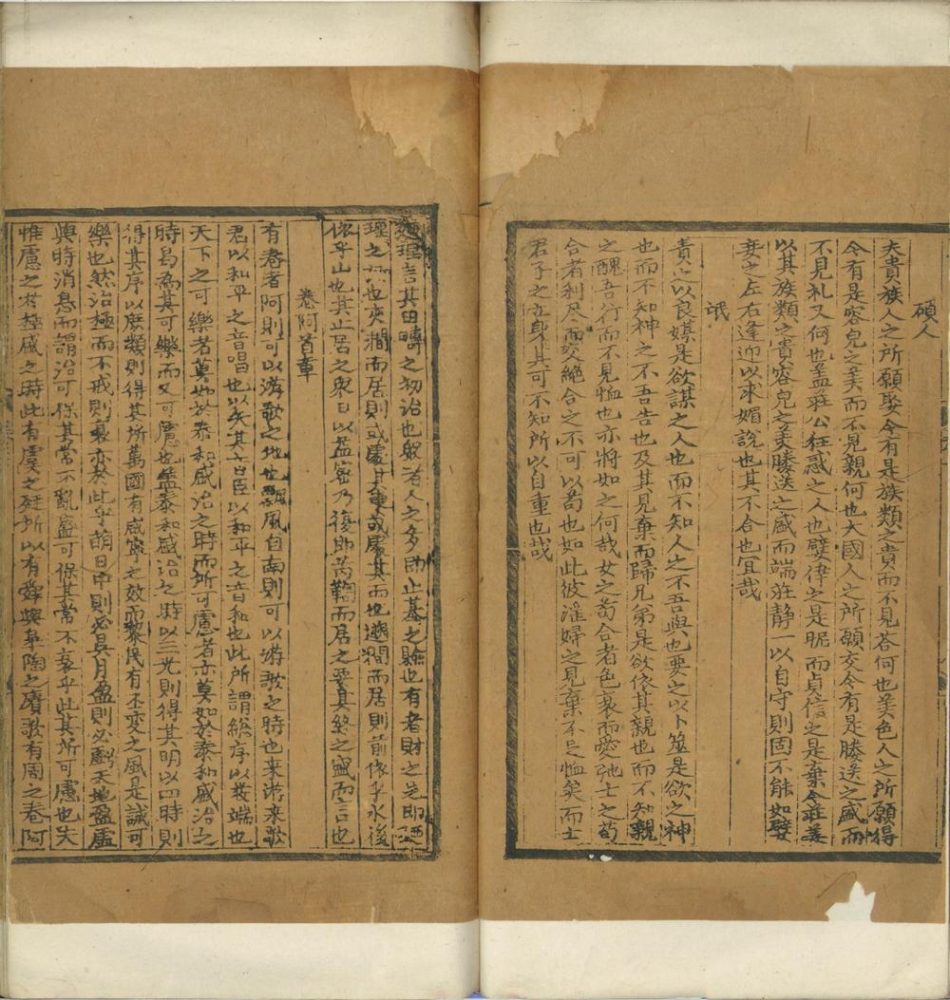 碩人
夫貴族人之所願娶今有是族類之貴而不見荅何也美色人之所願得
今有是容皃之美而不見親何也大國人之所願交今有是媵送之盛而
不見礼又何也盖莊公狂惑之人也嬖倖之是昵而貞信之是棄今莊姜
以其族類之貴容皃之美媵送之盛而端莊静一以自守則固不能如嬖
妾之左右逢迎以求媚說也其不合也宜哉
氓
責之以良媒是欲謀之人也而不知人之不吾與也要之以卜筮是欲之神
也而不知神之不吾告也及其見棄而歸兄弟是欲依其親也而不知親
之醜吾行而不見恤也亦將如之何哉女之苟合者色衰而愛弛士之苟
合者利尽而交絶合之不可以苟也如此彼淫婦之見棄不足恤矣而士
君子之立身其可不知所以自重也哉
廼理言其田疇之初治也爰者人之多即止基之驗也有者財之足即廼
理之也夾澗而居則或處其東或處其西也遡澗而居則前依乎水後
依乎山也其止居之衆日以益密乃復即芮鞫而居之要其終之盛而言也
卷阿首章
有卷者阿則可以游歌之地也飄風自南則可以游歌之時也来游来歌
君以和平之音唱也以矢其音臣以和平之音和也此所謂緫序以發端也
天下之可樂者莫如於泰和盛治之時而所可慮者亦莫如於泰和盛治之
時曷為其可樂而又可慮也盖泰和盛治之時以三光則得其明以四時則
得其序以庶類則得其所萬國有咸寧之效而黎民有丕变之風是誠可
樂也然治極而不戒則衰亦於此乎萌日中則必昃月盈則必虧天地盈虛
與時消息而謂治可保其常不亂盛可保其常不衰乎此其所可慮也夫
惟慮之於極盛之時此有虞之廷所以有舜與皋陶之賡歌有周之卷阿